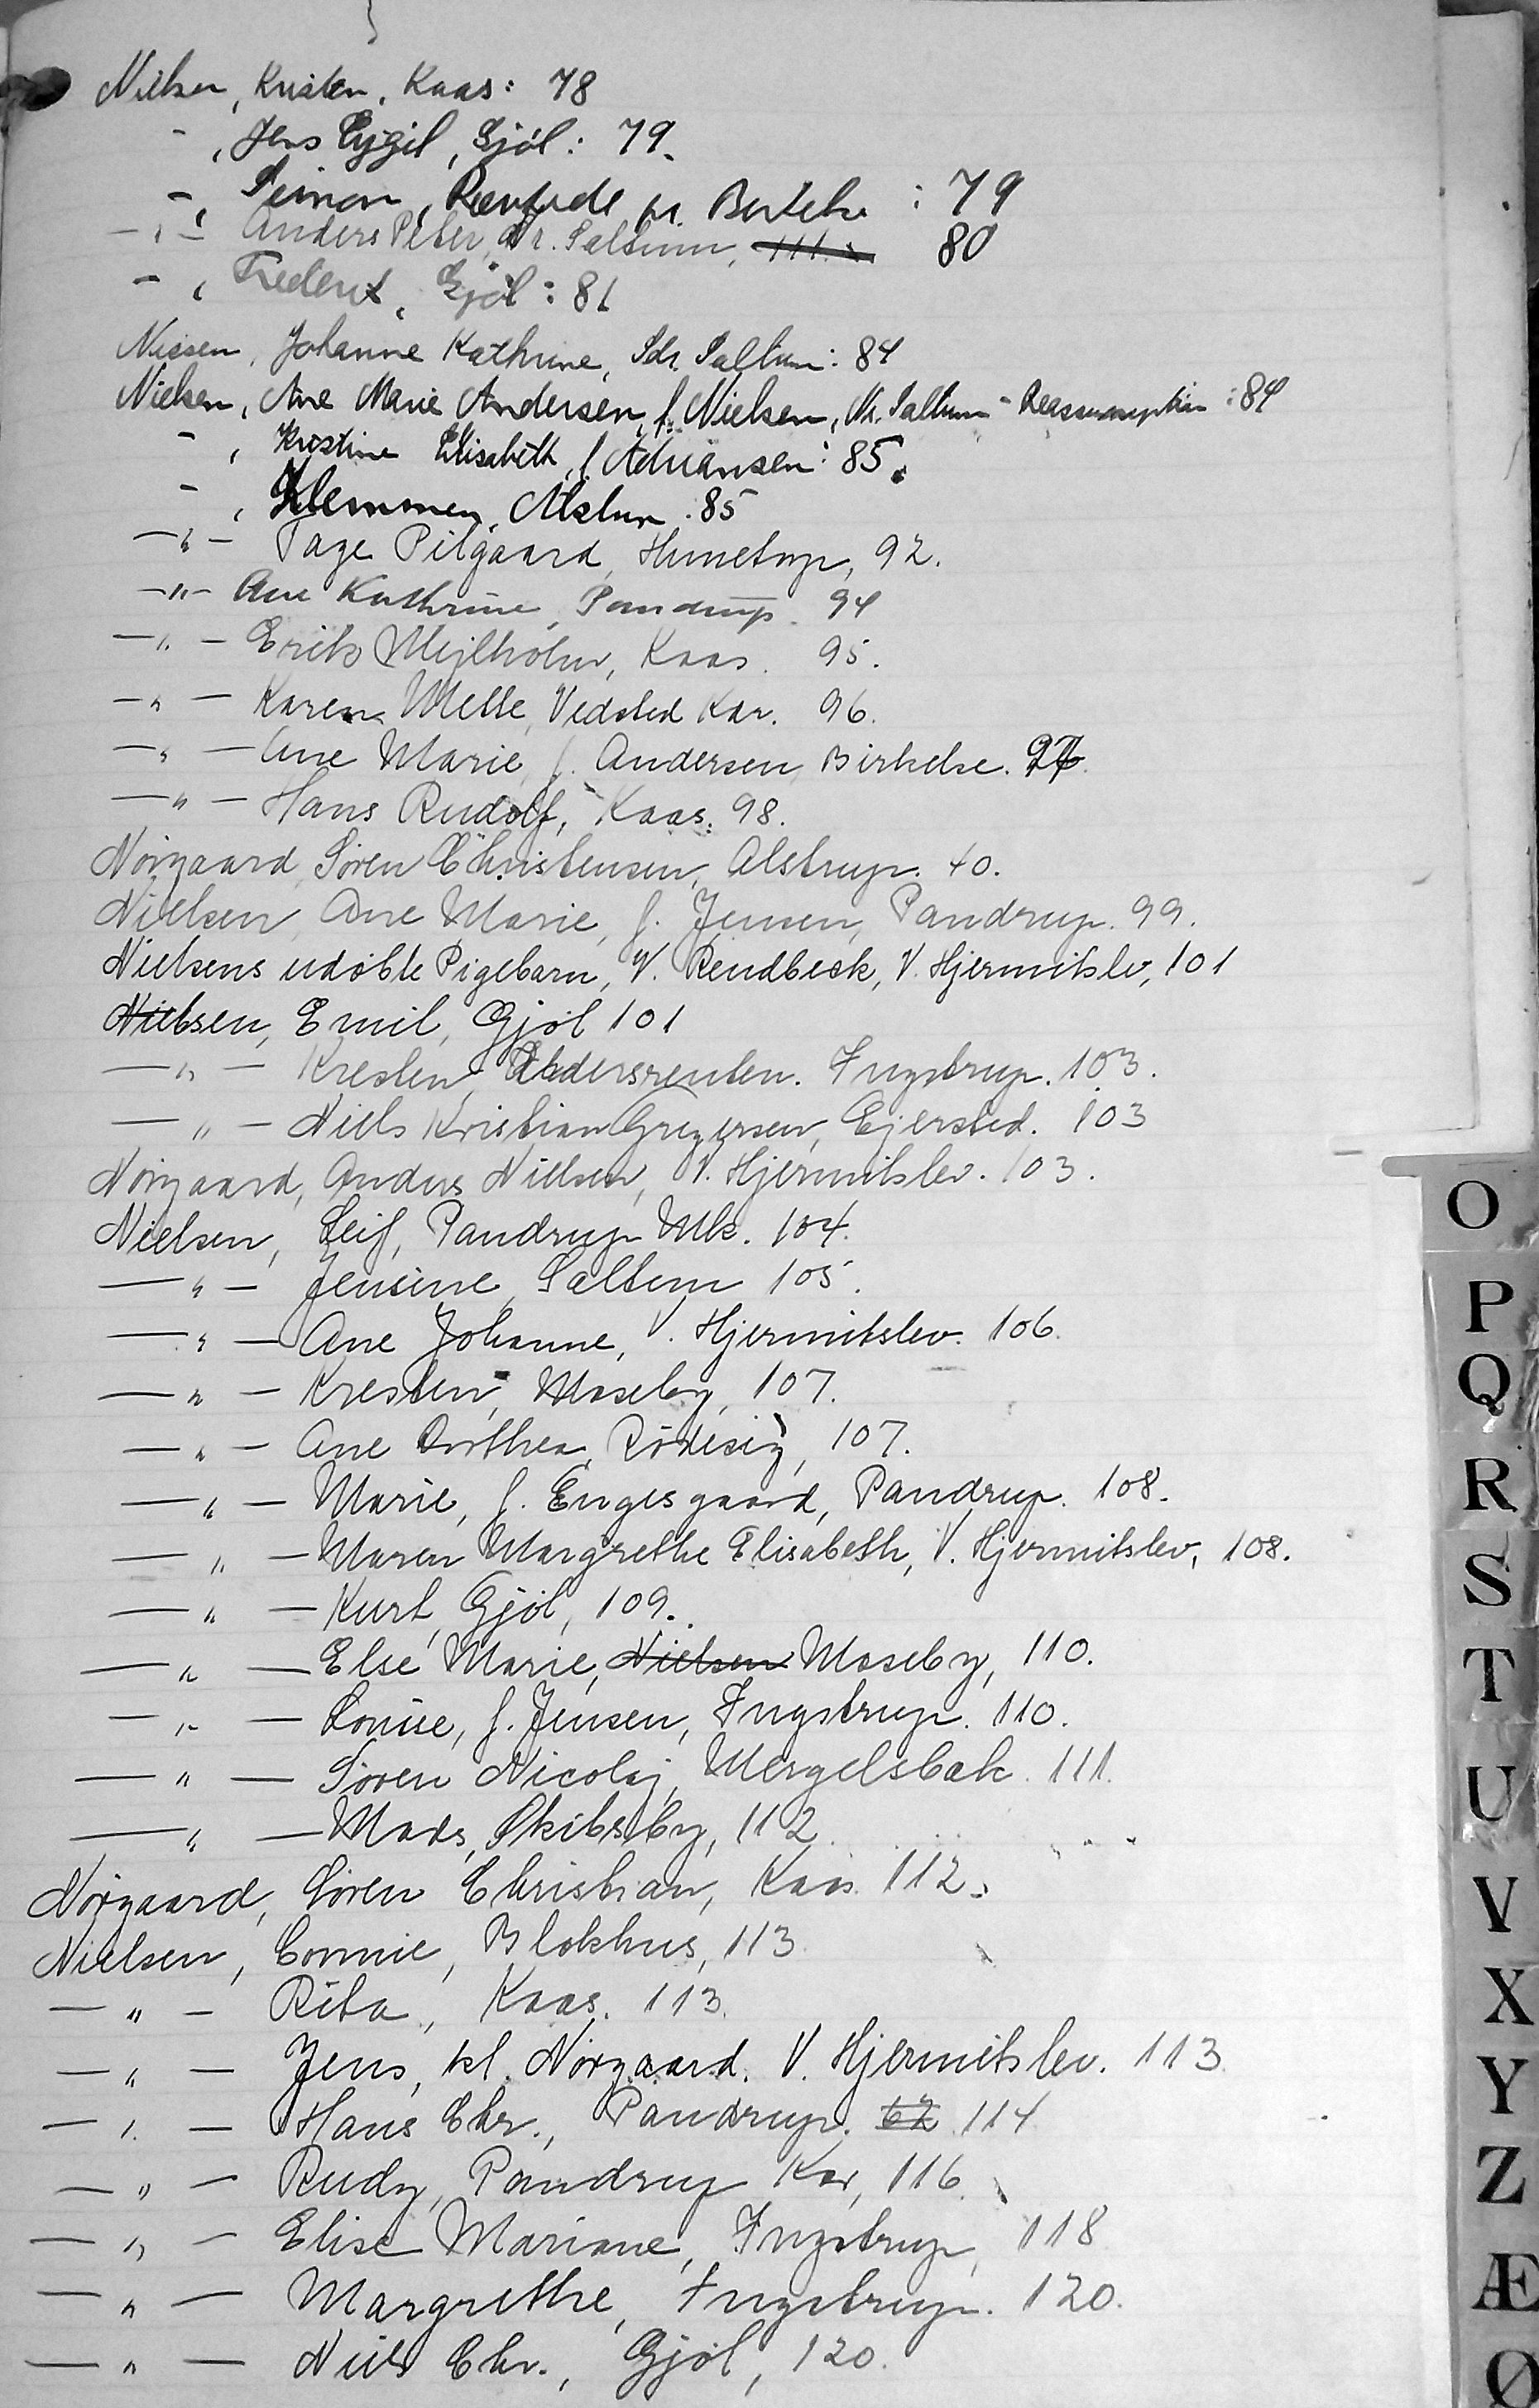 Nielsen, Kristen, Kaas: 78
- , Jens Eygil, Gjöl: 79.
- , Simon, pr. Birkelse: 79
- " - Anders Peter, Nr. Saltum, 80
- , Frederik, Gjöl: 81
Nissen, Johanne Kathrine, Sdr. Saltum: 84
Nielsen, Ane Marie Andersen, f. Nielsen, Nr. Saltum - Reassumption: 84
- , Kristine Elisabeth, f. Adriansen: 85.
- , Klemmen, 85
- " - Tage Pilgaard, Hunetorp, 92.
- " - Ane Kathrine, Pandrup. 94
- " - Erik Mejlholm, Kaas. 95.
- " - Karen Mette, Vedsted Kær. 96.
- " - Ane Marie, f. Andersen, Birkelse. 97
- " - Hans Rudolf, Kaas: 98.
Nörgaard, Sören Christensen, Alstrup. 40.
Nielsen, Ane Marie, f. Jensen, Pandrup. 99.
Nielsens udöbte Pigebarn, V. Rendbæk, V. Hjermitslev, 101
Nielsen, Emil, Gjöl 101
- " - Kresten, Aldersrenten. Ingstrup. 103.
- " - Niels Kristian Gregersen, Ejersted. 103
Nörgaard, Anders Nielsen, V. Hjermitslev. 103.
Nielsen, Leif, Pandrup Mk. 104.
- " - Jensine, Saltum 105.
- " - Ane Johanne, V. Hjermitslev. 106.
- " - Kresten, Moseby, 107.
- " - Ane Dorthea, Rödesig, 107.
- " - Marie, f. Engesgaard, Pandrup. 108.
- " - Maren Margrethe Elisabeth, V. Hjermitslev, 108.
- " - Kurt, Gjöl, 109.
- " - Else Marie, Nielsen Moseby, 110.
- " - Louise, f. Jensen, Ingstrup. 110.
- " - Sören Nicolaj, Mergelsbæk. 111.
- " - Mads, Skibsby, 112.
Nörgaard, Sören Christian, Kaas. 112.
Nielsen, Connie, Blokhus, 113.
- " - Rita, Kaas. 113.
- " - Jens, kl. Nörgaard. V. Hjermitslev. 113
- " - Hans Chr., Pandrup. 62 114
- " - Rudy, Pandrup Kær, 116.
- " - Elise Mariane, Ingstrup, 118
- " - Margrethe, Ingstrup. 120.
- " - Niels Chr., Gjöl, 120.
O
P
Q
R
S
T
U
V
X
Y
Z
Æ
Ø